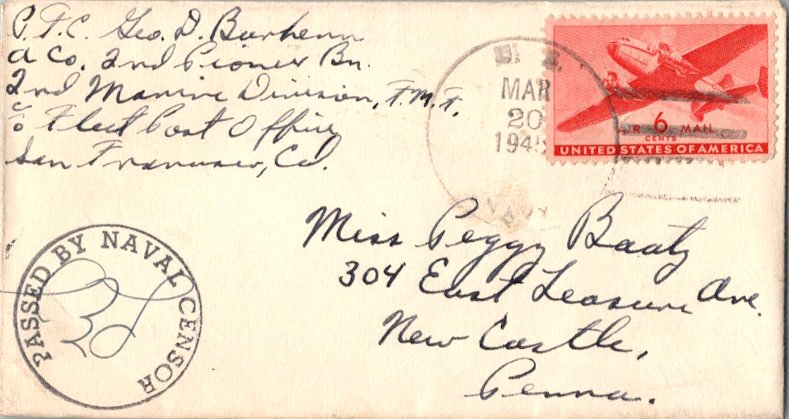 P.F.C. Geo. D. Barhenn
A Co. 2nd Pioneer Bn.
2nd Marine Division, F.M.F.
c/o Fleet Post Office
San Francisco, Cal.
U. S.
MAR
20
1945
NAVY
AIR 6 MAIL
CENTS
UNITED STATES OF AMERICA
Miss Peggy Baatz
304 East Leasure Ave.
New Castle,
Penna.
PASSED BY NAVAL CENSOR